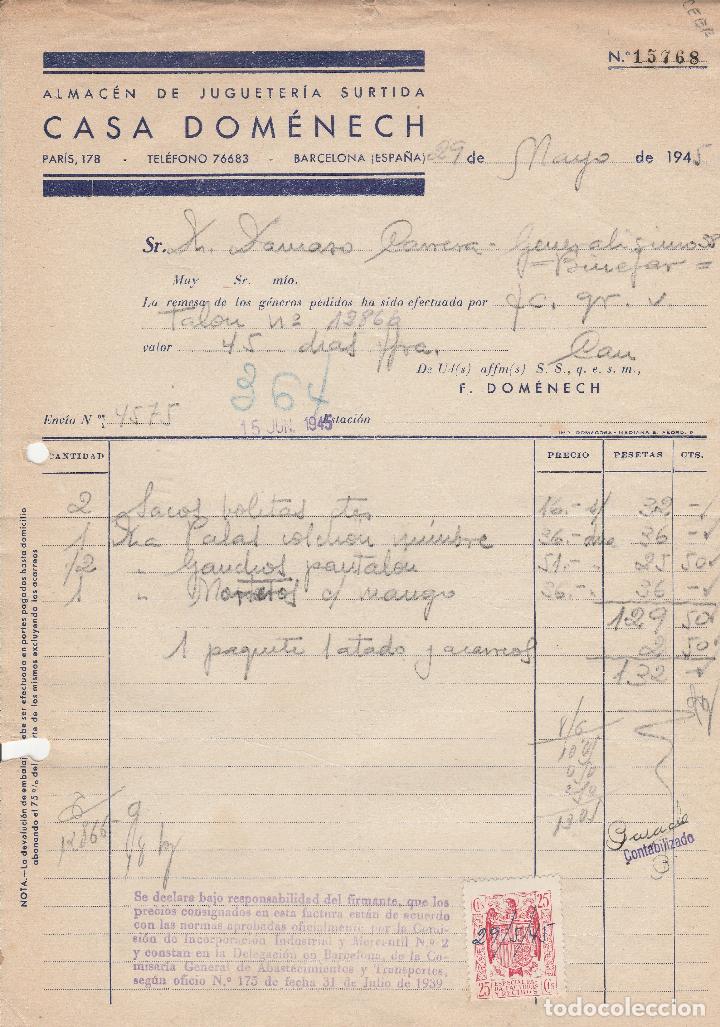 N.º 15768
ALMACÉN DE JUGUETERÍA SURTIDA
CASA DOMÉNECH
PARÍS, 178 - TELÉFONO 76683 - BARCELONA (ESPAÑA)
29 de Mayo de 1945
Sr. D. Damaso Carrera - Generalisimo 38
= Binefar =
Muy Sr. mío.
La remesa de los géneros pedidos ha sido efectuada por fc. gr. v.
Talon nº 12866
valor 45 dias fra.
De Ud(s) affm(s) S. S., q. e. s. m.,
F. DOMÉNECH
364
Envío N.º 4575
15 JUN. 1945
Estación
IMP. DOMAGOSA - MEDIANA S. PEDRO, 9
CANTIDAD PRECIO PESETAS CTS.
2 Sacos bolitas 16.- 32 -
1 Palas colchon mimbre 36.- 36 -
1/2 " Gauchos pantalon 51.- " 25 50
1 " c/ mango 36.- " 36 -
129 50
1 paquete 1 atado y acarreos 2 50
132 -
8/6
13.01
12866
9
18 kg
Contabilizado
NOTA.—La devolución de embalaj debe ser efectuada en portes pagados hasta domicilio
abonando el 75% del rte de los mismos excluyendo los acarreos
Se declara bajo responsabilidad del firmante, que los
precios consignados en esta factura están de acuerdo
con las normas aprobadas oficialmente por la Comi-
sión de Incorporación Industrial y Mercantil N.º 2
y constan en la Delegación en Barcelona, de la Co-
misaría General de Abastecimientos y Transportes,
según oficio N.º 173 de fecha 31 de Julio de 1939
Cts 25
29/5/45
25 ESPECIAL PARA FACTURAS Y RECIBOS Cts
todocoleccion